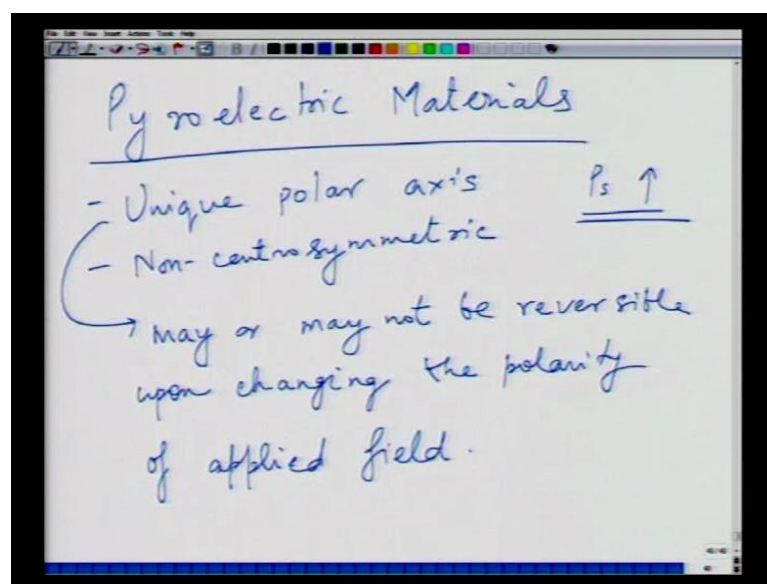 File Edit View Insert Actions Tools Help
Pyroelectric Materials
- Unique polar axis
Ps ↑
- Non-centrosymmetric
→ may or may not be reversible
upon changing the polarity
of applied field.